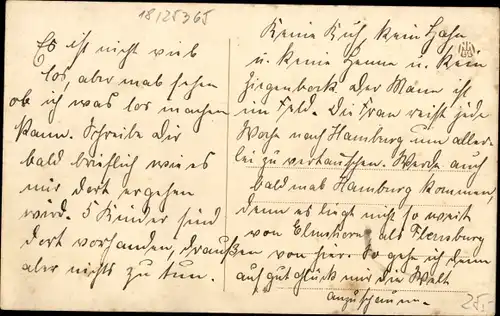 18/25365
Es ist nicht viel
los, aber mal sehen
ob ich was los machen
kann. Schreibe Dir
bald brieflich wie es
mir dort ergehen
wird. 5 Kinder sind
dort vorhanden, draußen
aber nichts zu tun.
Keine Kuh, kein Hahn
u. keine Henne u. kein
Ziegenbock. Der Mann ist
im Feld. Die Frau reist jede
Woche nach Hamburg um aller-
lei zu vertauschen. Werde auch
bald mal Hamburg kommen,
denn es liegt nicht so weit
von Elmshorn als Flensburg
von hier. So gehe ich denn
auf gut Glück mir die Welt
anzuschauen.
25.-